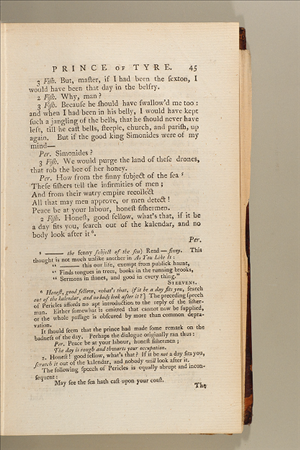 PRINCE of TYRE. 45
3 Fish. But, master, if I had been the sexton, I
would have been that day in the belfry.
2 Fish. Why, man?
3 Fish. Because he should have swallow'd me too:
and when I had been in his belly, I would have kept
such a jangling of the bells, that he should never have
left, till he cast bells, steeple, church, and parish, up
again. But if the good king Simonides were of my
mind—
Per. Simonides?
3 Fish. We would purge the land of these drones,
that rob the bee of her honey.
Per. How from the finny subject of the sea
These fishers tell the infirmities of men;
And from their watry empire recollect
All that may men approve, or men detect!
Peace be at your labour, honest fishermen.
2 Fish. Honest, good fellow, what's that, if it be
a day fits you, search out of the kalendar, and no
body look after it
Per.
—— the fenny subject of the sea] Read — finny. This
thought is not much unlike another in As You Like It:
"—— this our life, exempt from publick haunt,
"Finds tongues in trees, books in the running brooks,
"Sermons in stones, and good in every thing."
STEEVENS.
Honest, good fellow, what's that, if it be a day fits you, search
out of the kalendar, and no body look after it?] The preceding speech
of Pericles affords no apt introduction to the reply of the fisher-
man. Either somewhat is omitted that cannot now be supplied,
or the whole passage is obscured by more than common depra-
vation.
It should seem that the prince had made some remark on the
badness of the day. Perhaps the dialogue originally ran thus:
Per. Peace be at your labour, honest fishermen;
The day is rough and thwarts your occupation.
2. Honest! good fellow, what's that? If it be not a day fits you,
scratch it out of the kalendar, and nobody will look after it.
The following speech of Pericles is equally abrupt and incon-
sequent:
May see the sea hath cast upon your coast.
The